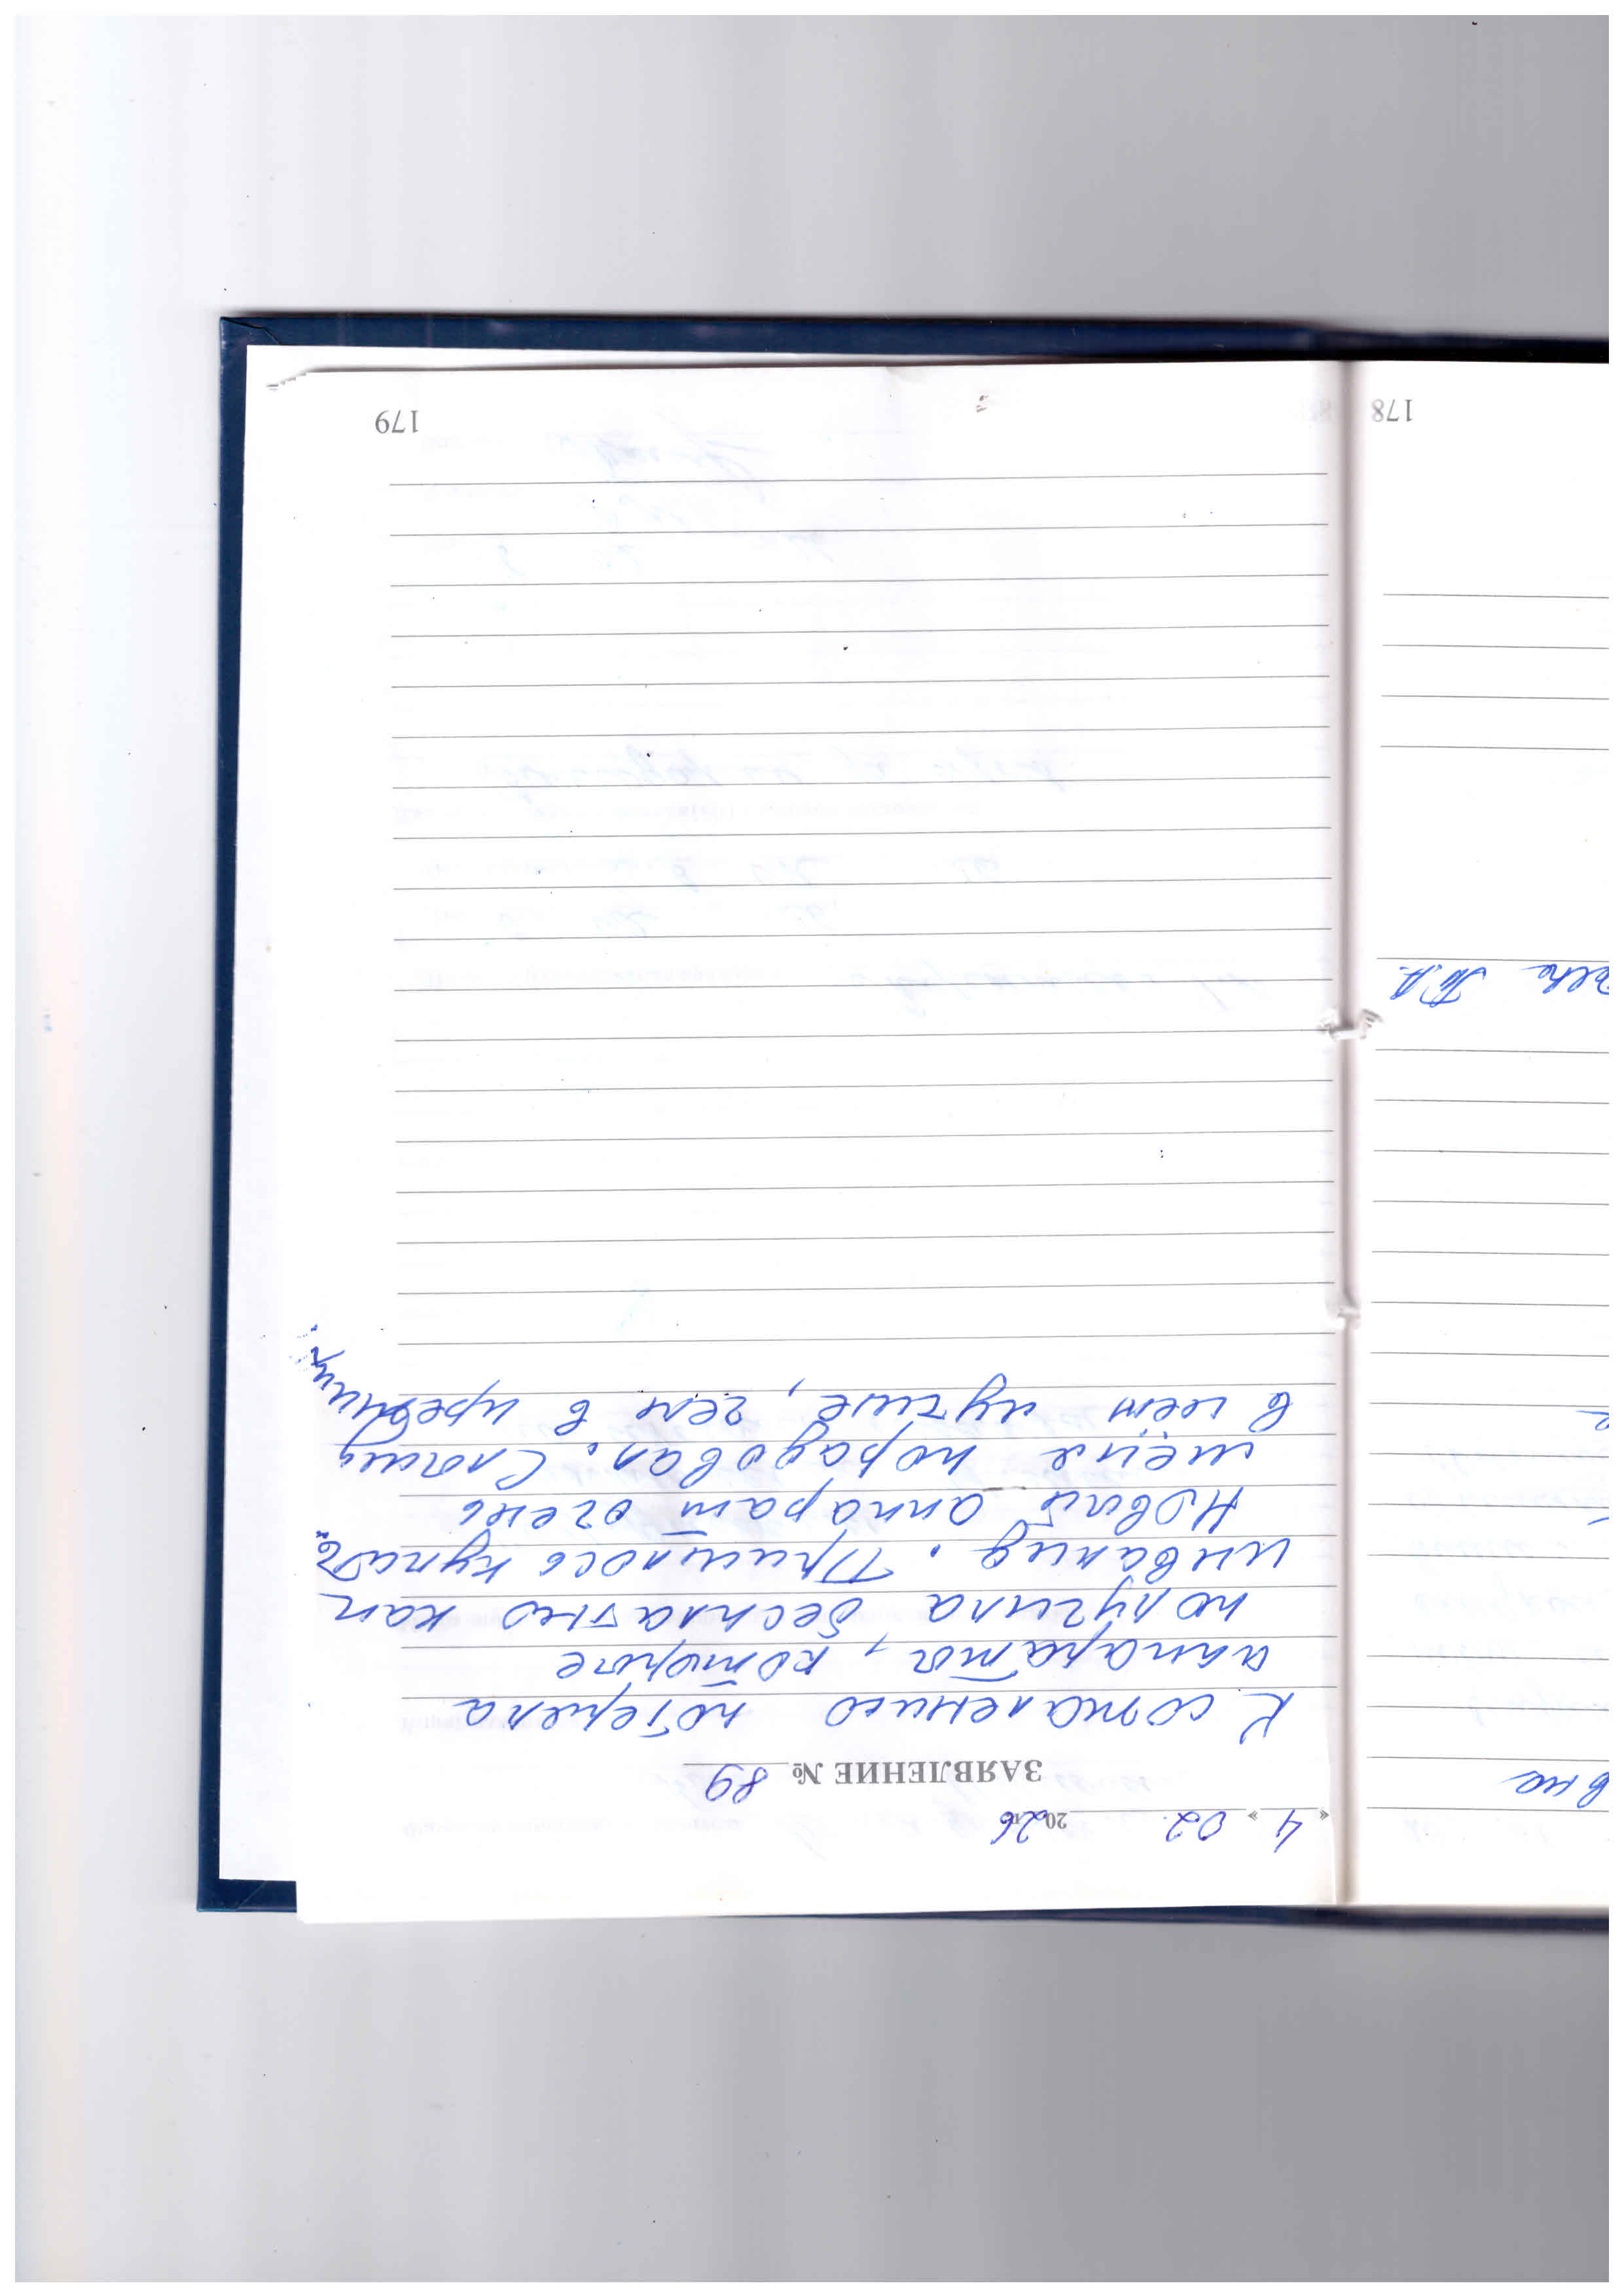 « 4 » 02. 2026
ЗАЯВЛЕНИЕ № 89
К сожалению потеряла
аппарата, которые
получила бесплатно как
инвалид. Пришлось купать.
Новый аппарат очень
меня порадовал. Слышу
в нем лучше, чем в предыдущ.
179
вно
е
ПВЛ
178